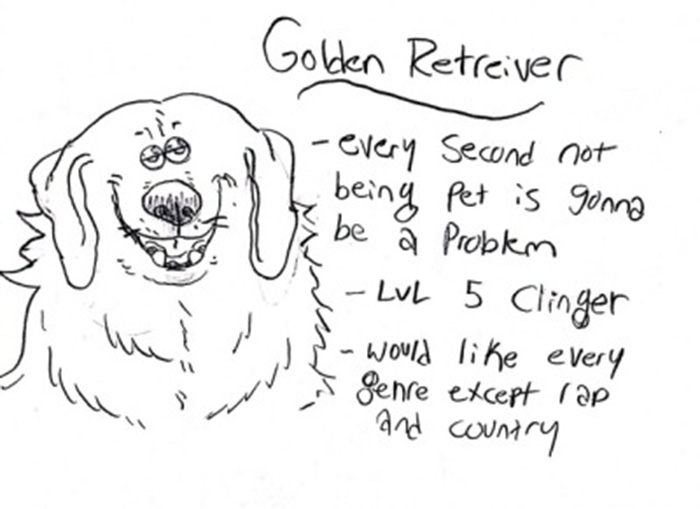 Golden Retreiver
- every Second not
being Pet is gonna
be a Problem
- LVL 5 Clinger
- would like every
genre except rap
and country